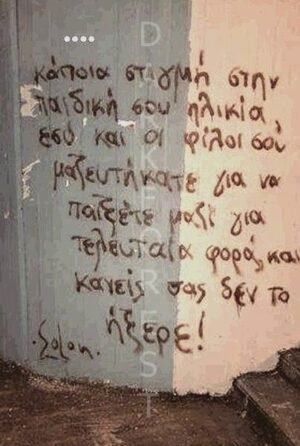 ....
κάποια στιγμή στην
παιδική σου ηλικία,
εσύ και οι φίλοι σου
μαζευτήκατε για να
παίξετε μαζί για
τελευταία φορά, και
κανείς σας δεν το
ήξερε!
.Solon.
DARKFOREST